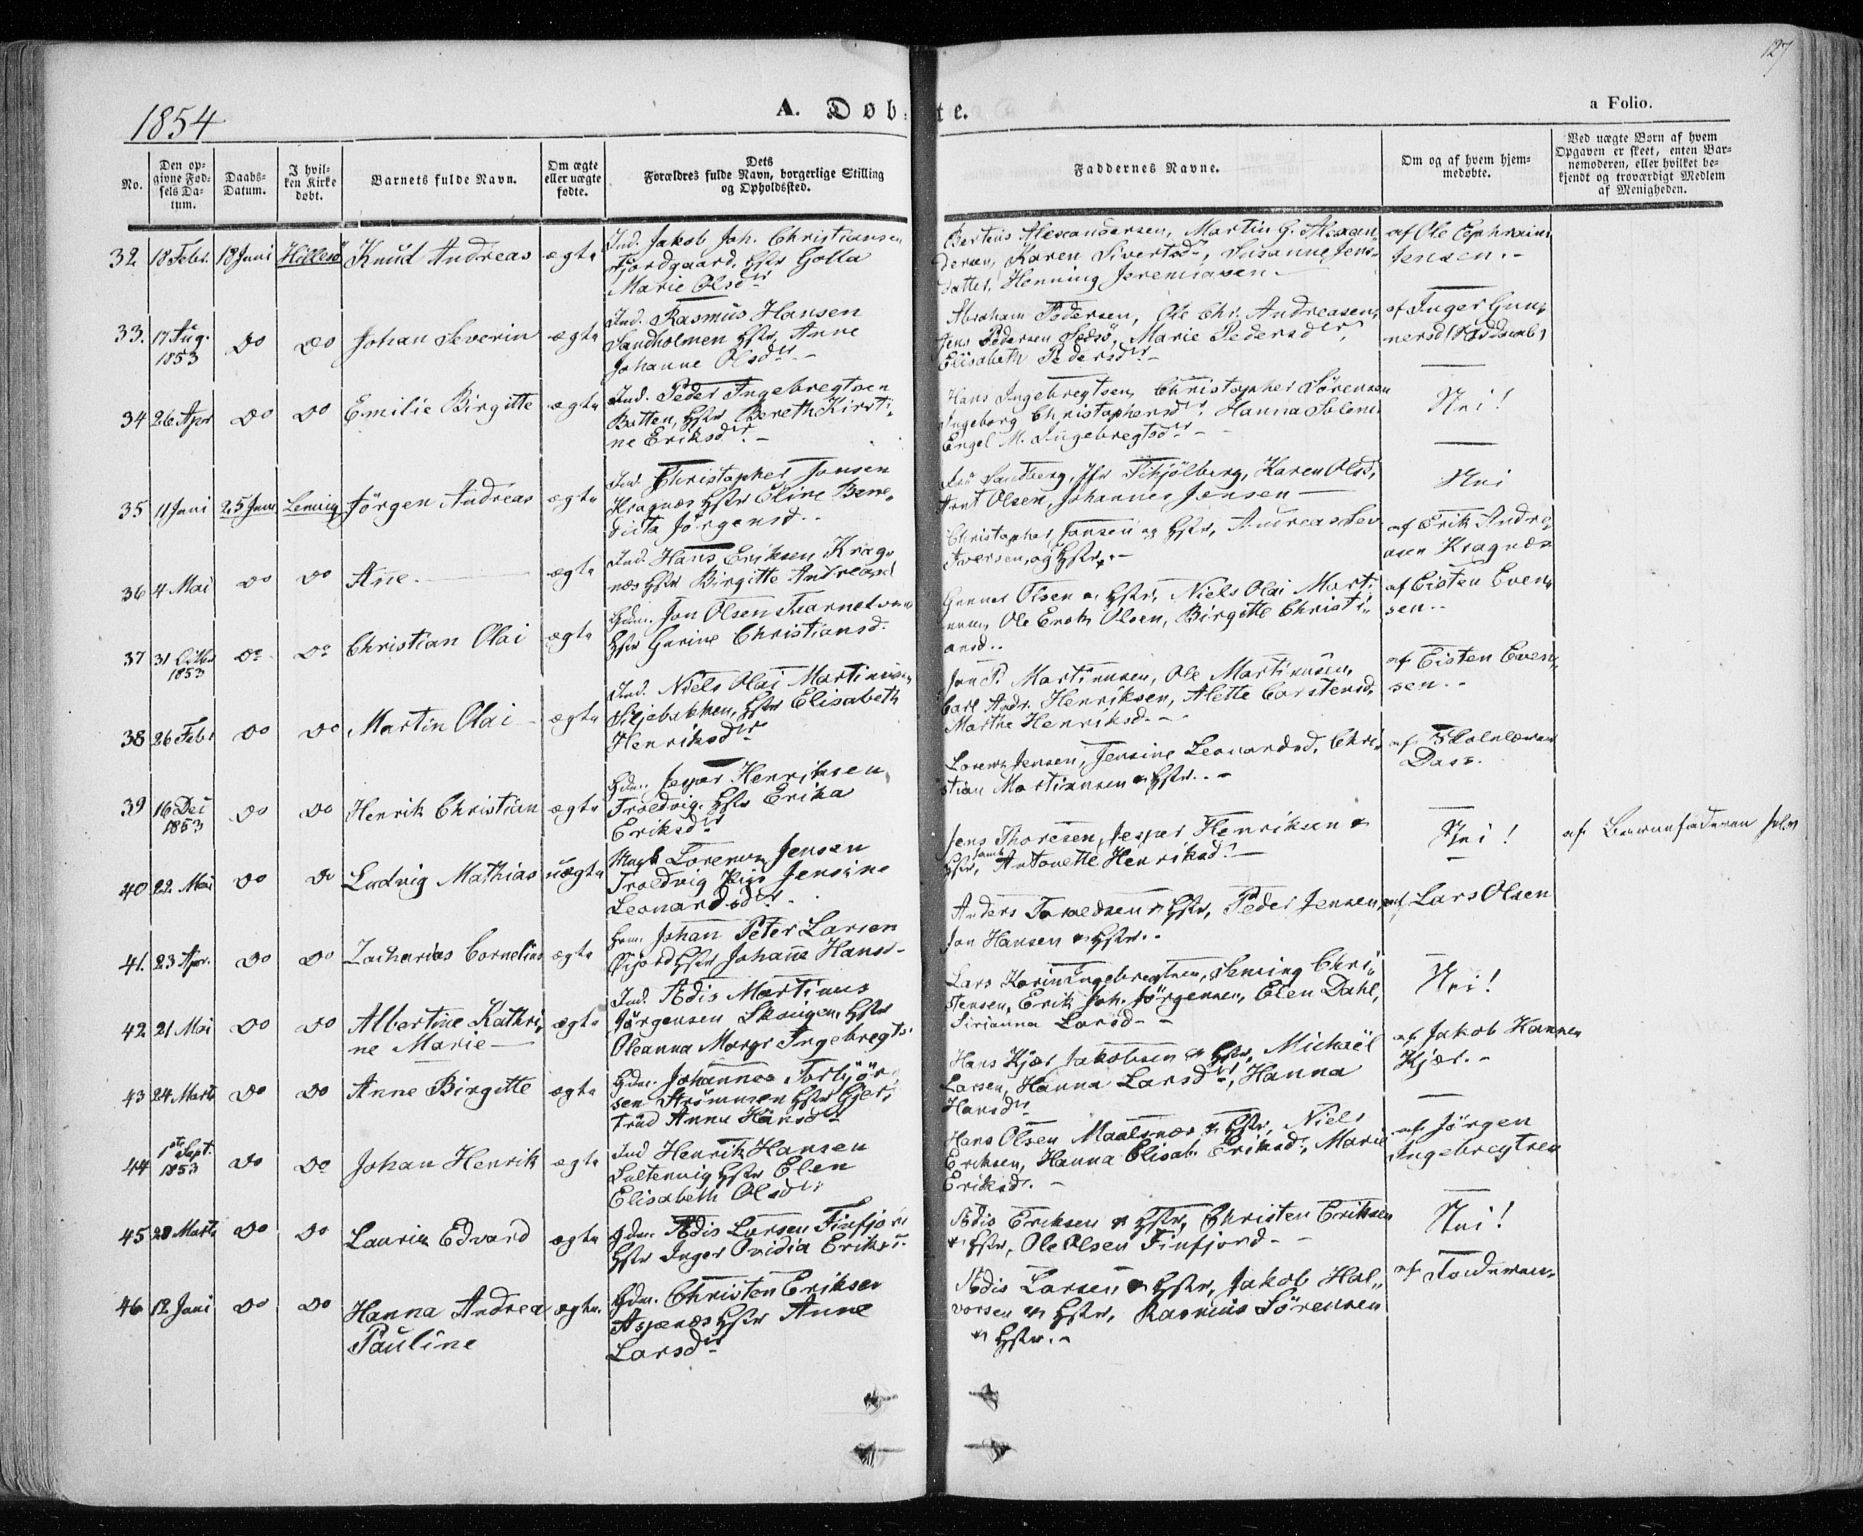 127
1854
A. Døbte.
a Folio.
No.
Den op-
givne Fød-
sels Da-
tum.
Daabs-
Datum.
I hvil-
ken Kirke
døbt.
Barnets fulde Navn.
Om ægte
eller uægte
fødte.
Dets
Forældres fulde Navn, borgerlige Stilling
og Opholdssted.
Faddernes Navne.
Om og af hvem hjem-
medøbte.
Ved uægte Børn af hvem
Opgaven er skeet, enten Bar-
nemoderen, eller hvilket be-
kjendt og troværdigt Medlem
af Menigheden.
32. 18 Febr. 18 Juni Hillesø Knud Andreas ægte
Ind. Jakob Joh. Christiansen
Fjordgaard, Hstr Golla
Marie Olsdr
Berteus Alexandersen, Martin G. Alexan-
dersen, Karen Sivertsdr, Susanne Jens-
datter, Henning Jeremiasen
af Ole Ephraim
Jensen.
33. 17 Aug. 1853 Do Do Johan Severin ægte
Ind. Rasmus Hansen
Sandholmen Hstr Anne
Johanne Olsdr
Abraham Pedersen, Ole Chr. Andreasen,
Jens Pedersen, Marie Pedersdr,
Elisabeth Pedersdr
af Inger Gun-
nersd
34 26 Apr Do Do Emilie Birgitte ægte
Ind. Peder Ingebregtsen
Botten, Hstr Bereth Kirsti-
ne Eriksdr.
Hans Ingebregtsen, Christopher Sörensen
Ingeborg Christophersdr, Hanna
Engel M. Ingebregtsdr
Nei!
35 11 Juni 25 Juni Lenvig Jörgen Andreas ægte
Ind. Christopher Jansen
Kragnæs Hstr Eline Bene-
dicta Jörgensd.
Sandberg, Karen Olsd,
Arnt Olsen, Johannes Jensen
Nei
36 4 Mai Do Do Ane ægte
Ind. Hans Eriksen Krag-
næs Hstr Birgitte Andreasd
Christopher Jansen og Hstr, Andreas
Iversen og Hstr.
af Erik Andre-
asen Kragnæs
37 31 1853 Do Do Christian Olai ægte
Gdm. Jon Olsen
Hstr Gurine Christiansd.
Gunner Olsen og Hstr, Niels Olai Marti-
nusen, Ole Olsen, Birgitte Christi-
ansd.
af Eisten Even-
sen.
38 26 Febr Do Do Martin Olai ægte
Ind. Niels Olai Martinusen
Siljebakken, Hstr Elisabeth
Henriksdr
Jon P. Martinusen, Ole Martinusen,
Carl Andr. Henriksen, Alette Carstensd,
Marthe Henriksd.
af Eisten Even-
sen.
39 16 Dec 1853 Do Do Henrik Christian ægte
Gdm. Jesper Henriksen
Troldvig, Hstr Erika
Eriksdr
Lorens Jensen, Jensine Leonardsd. Chri-
stian Martinusen og Hstr.
af Skolelærer
Dass.
40 22 Mai Do Do Ludvig Mathias uægte
Ungk Lorens Jensen
Troldvig Pige Jensine
Leonardsdr.
Jens Thoresen, Jesper Henriksen og
Hstr, samt Antonette Henriksd.
Nei!
af Barnefaderen selv
41. 23 Apr. Do Do Zacharias Cornelius ægte
Gdm. Johan Peter Larsen
Øijord Hstr Johanne Hansd
Anders og Hstr, Peder Jensen,
Jon Hansen og Hstr.
af Lars Olsen
42 21 Mai Do Do Albertine Kathri-
ne Marie ægte
Ind. Ædis Martinus
Jörgensen Skougen, Hstr
Oleanna Margr Ingebregts
Lars Ingebregtsen, Henning Chri-
stensen, Erik Joh. Jörgensen, Elen Dahl,
Sirianna Larsd
Nei!
43 24 Marts Do Do Anne Birgitte ægte
Gdm. Johannes Torbjör-
sen Strömmen Hstr Gjer-
trud Anna Hansdr
Hans Kjær Jakobsen og Hstr, Michael
Larsen, Hanna Larsdr, Hanna
Hansdr
af Jakob Hansen
Kjær.
44 1ste Sept. 1853 Do Do Johan Henrik ægte
Ind Henrik Hansen
Sultenvig Hstr Elen
Elisabeth Olsdr
Hans Olsen Maalsnæs og Hstr, Niels
Eriksen, Hanna Elisab. Eriksd, Marie
Eriksd.
af Jörgen
Ingebregtsen
45 28 Marts Do Do Lauriz Edvard ægte
Gdm. Ædis Larsen Finfjord
Hstr Inger Ovidia Eriksd.
Ædis Eriksen og Hstr, Christen Eriksen
og Hstr, Ole Olsen Finfjord
Nei!
46 12 Juni Do Do Hanna Andrea
Pauline ægte
Gdm. Christen Eriksen
Aspenæs Hstr Anne
Larsdr
Ædis Larsen og Hstr, Jakob Hal-
vorsen og Hstr, Rasmus Sörensen
og Hstr.
af Faderen.